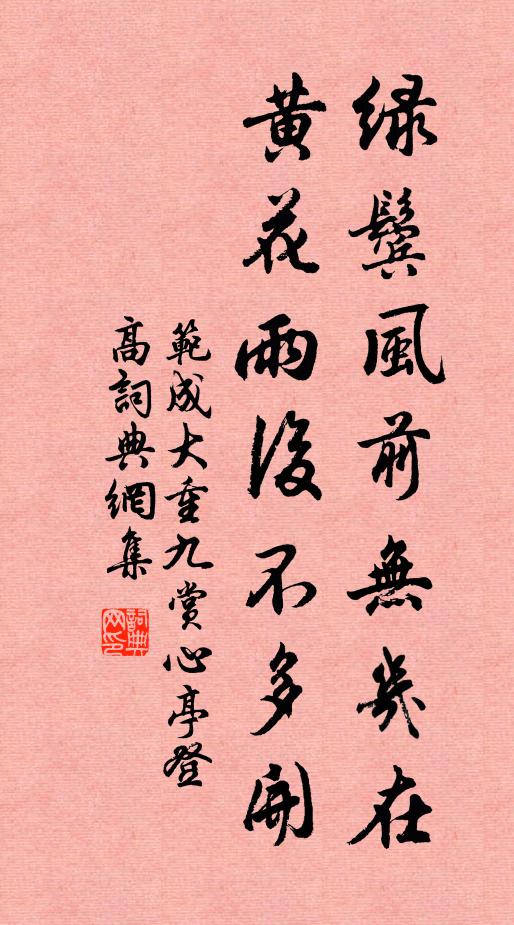 緑鬢風前無幾在
黄花雨後不多開
範成大重九賞心亭登
高詞典網集
詞典
网印